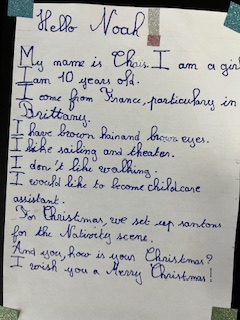 Hello Noah
My name is Chris. I am a girl
I am 10 years old.
I come from France, particulary in
Brittany.
I have brown hair and brown eyes.
I like sailing and theater.
I don't like walking.
I would like to become childcare
assistant.
For Christmas, we set up santons
for the Nativity scene.
And you, how is your Christmas?
I wish you a Merry Christmas!